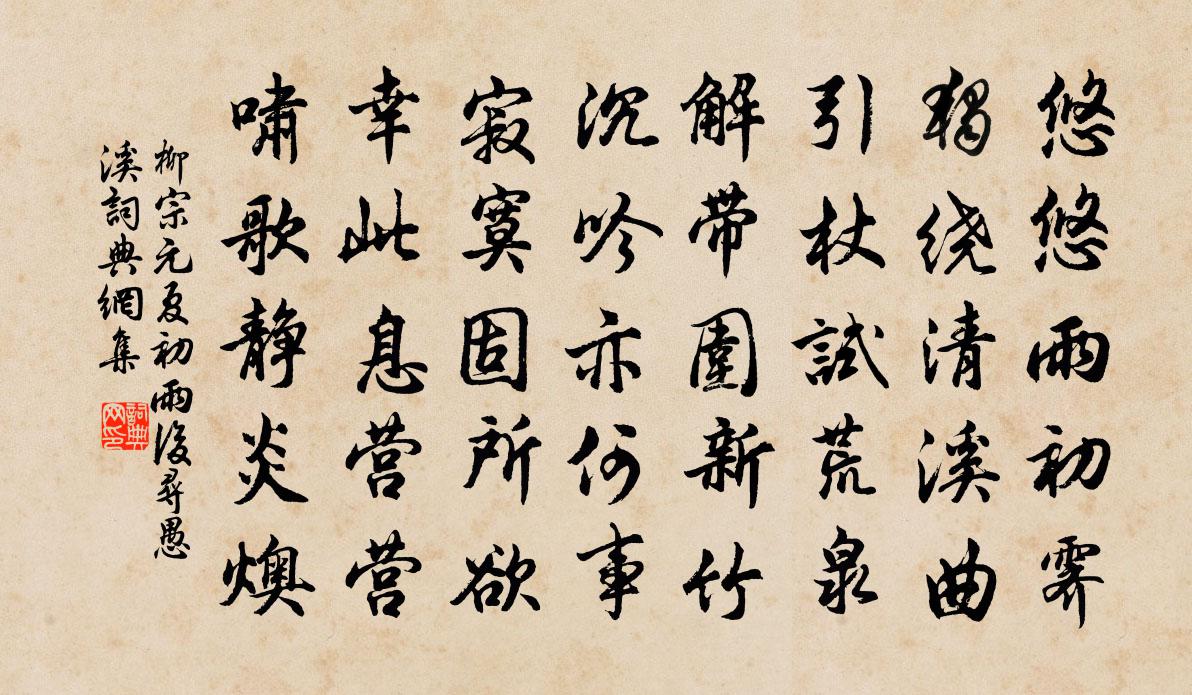 悠悠雨初霁
独绕清溪曲
引杖試荒泉
解带圍新竹
沉吟亦何事
寂寞固所欲
幸此息营营
啸歌静炎燠
柳宗元夏初雨後尋愚
溪詞典網集
詞典
网印